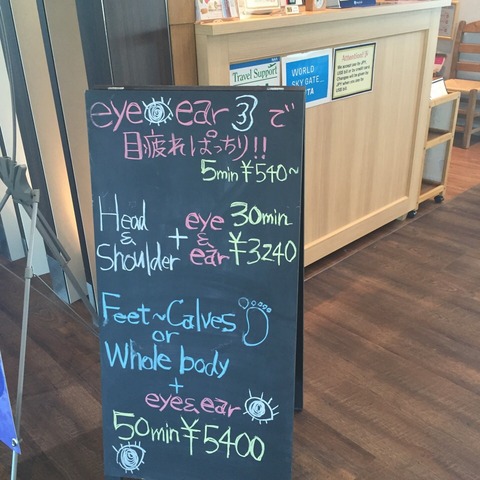 eye ear で
目疲れぱっちり!!
5min ¥540~
Head & Shoulder + eye & ear 30min ¥3240
Feet~Calves
or
Whole body
+
eye&ear
50min ¥5400
Travel Support
WORLD
SKY GATE_
Attention!!
We accept pay by JPY,